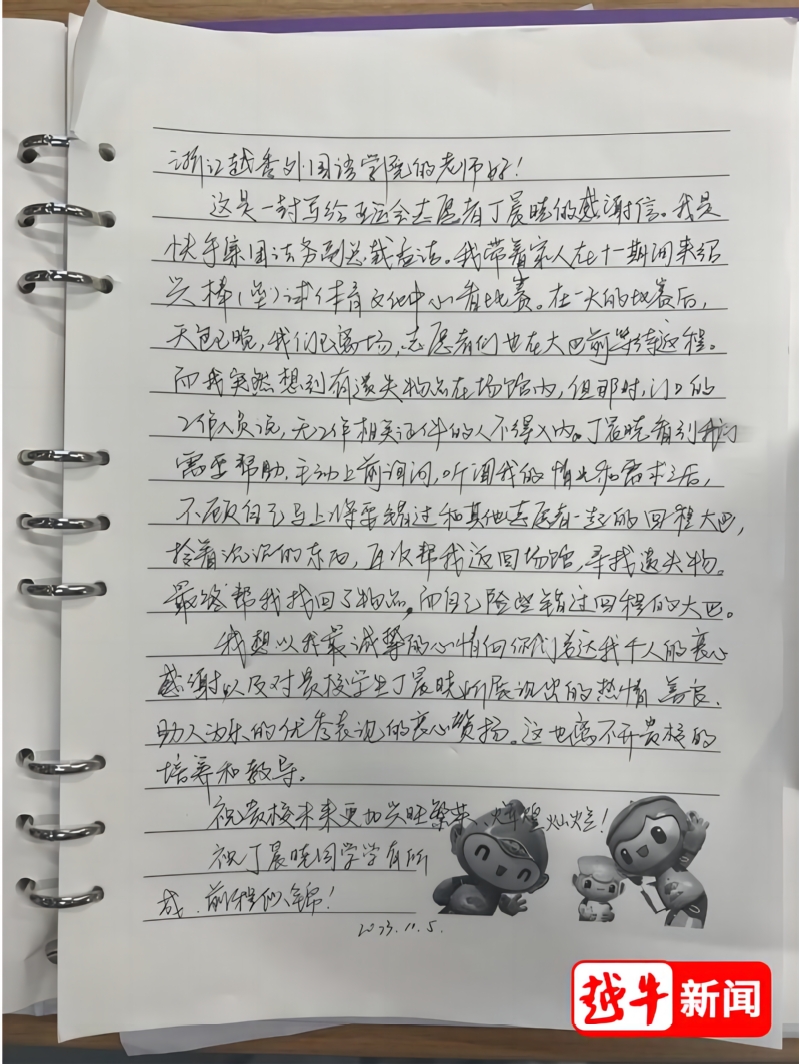 浙江越秀外国语学院的老师好!
这是一封写给亚运会志愿者丁晨晓的感谢信。我是
快手集团法务副总裁
。我带着家人在十一期间来绍
兴棒(垒)球体育文化中心看比赛。在一天的比赛后,
天色已晚,我们已离场,志愿者们也在大巴前等待返程。
而我突然想到有遗失物品在场馆内,但那时,门口的
工作人员说,无工作相关证件的人不得入内。丁晨晓看到我们
需要帮助,主动上前询问,听闻我的情况和需求之后,
不顾自己马上将要错过和其他志愿者一起的回程大巴,
拎着沉沉的东西,再次帮我返回场馆,寻找遗失物。
最终帮我找回了物品,而自己险些错过回程的大巴。
我想以我最诚挚的心情向你们表达我个人的衷心
感谢以及对贵校学生丁晨晓所展现出的热情、善良、
助人为乐的优秀表现的衷心赞扬。这也离不开贵校的
培养和教导。
祝贵校未来更加兴旺繁荣、辉煌灿烂!
祝丁晨晓同学学有所
成、前程似锦!
2023.11.5.
越牛新闻